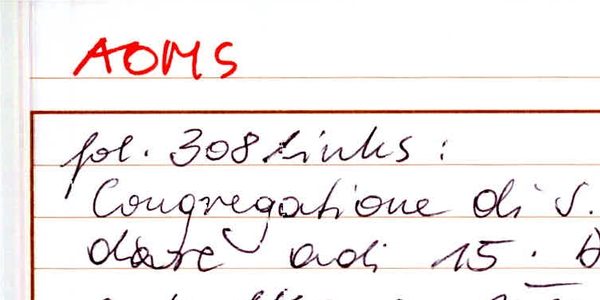 AOMS
fol. 308 links:
Congregatione di S.
dare adi 15.